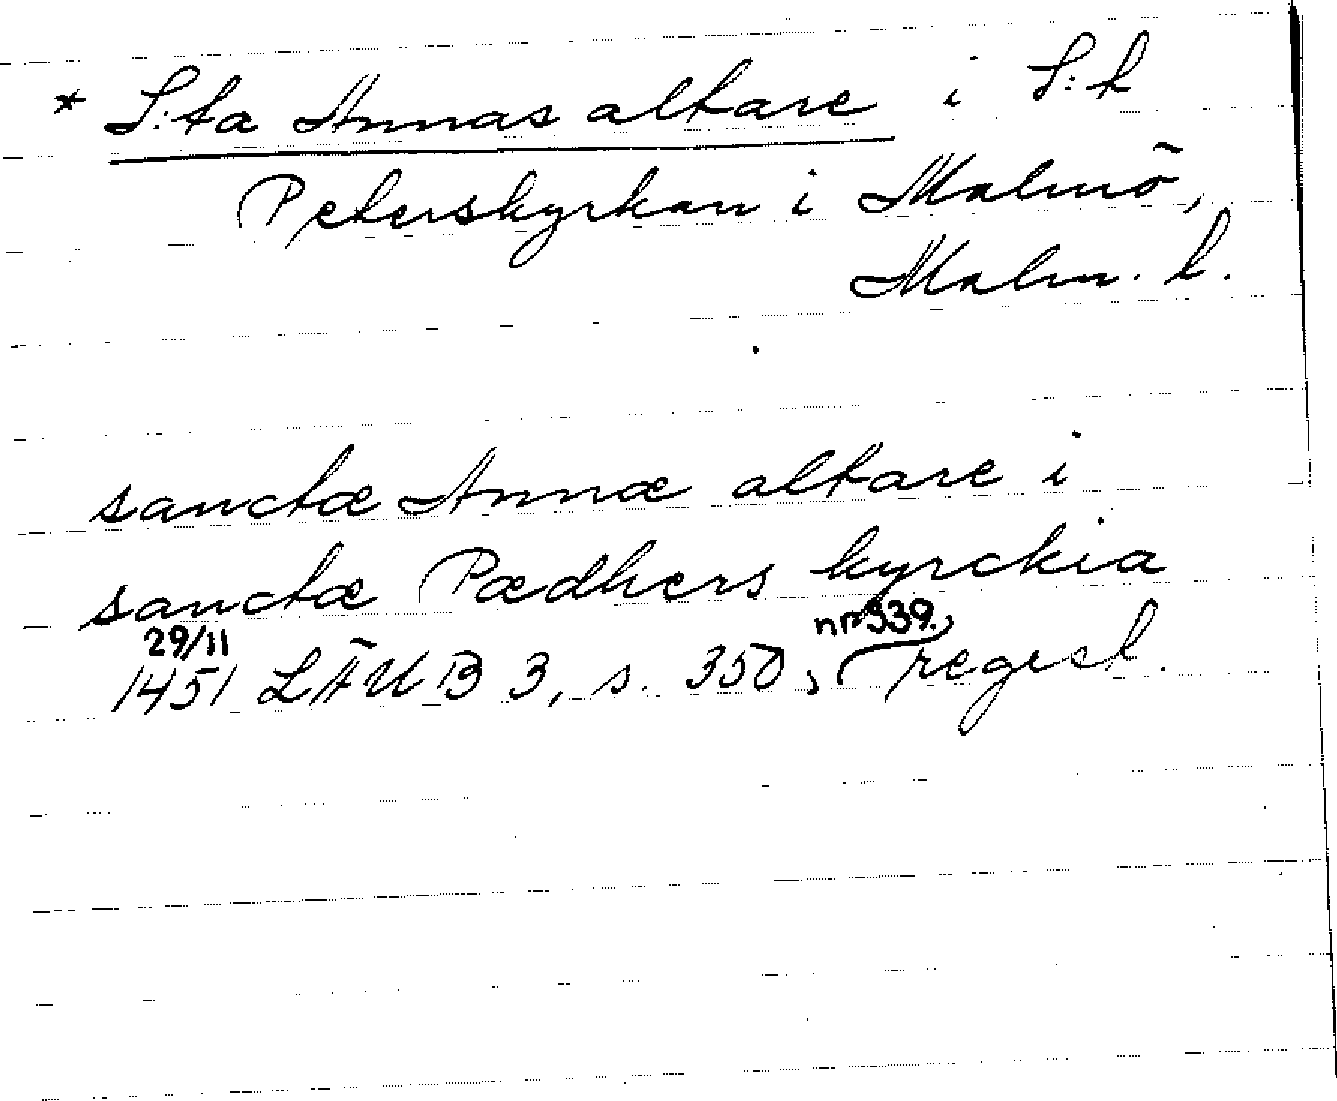 * S:ta Annas altare i S:t
Peterskyrkan i Malmö,
Malm. l.
sanctæ Annæ altare i
sanctæ Pædhers kyrckia
29/11 nr 339.
1451 LÄUB 3, s. 350, regest.